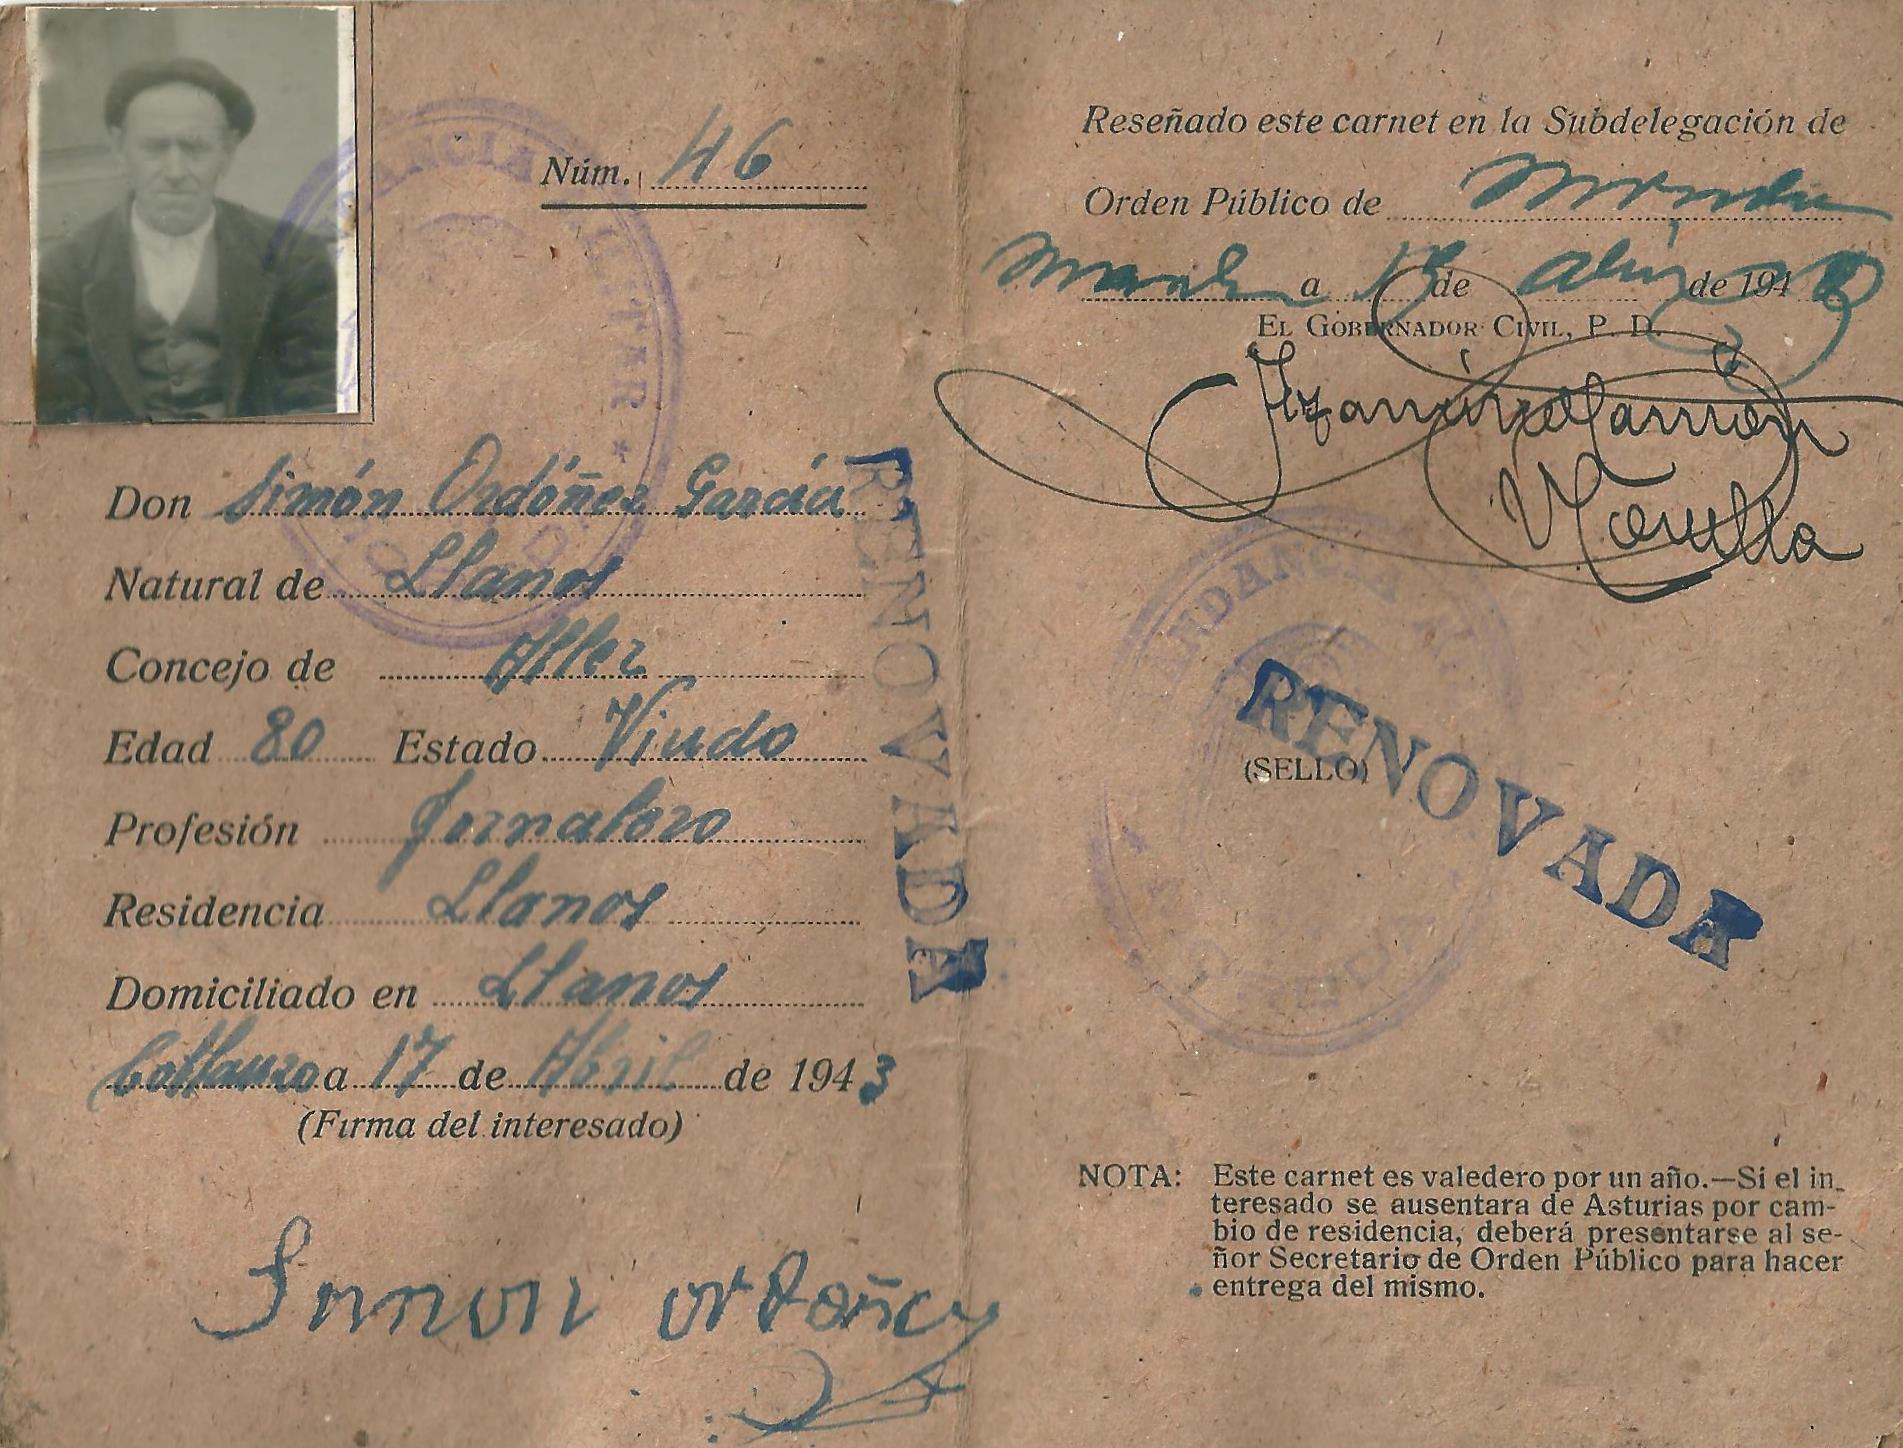 Núm. 46
Don Simón Ordóñez García
Natural de Llanos
Concejo de Aller
Edad 80 Estado Viudo
Profesión Jornalero
Residencia Llanos
Domiciliado en Llanos
Collanzo a 17 de Abril de 1943
(Firma del interesado)
Simon ordoñez
RENOVADA
Reseñado este carnet en la Subdelegación de
Orden Público de
a de Abril de 194
EL GOBERNADOR CIVIL, P. D.
RENOVADA
(SELLO)
NOTA: Este carnet es valedero por un año.—Si el in-
teresado se ausentara de Asturias por cam-
bio de residencia, deberá presentarse al se-
ñor Secretario de Orden Público para hacer
entrega del mismo.